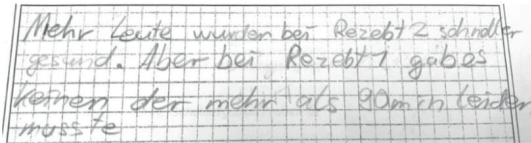 Mehr Leute wurden bei Rezebt 2 schneller
gesund. Aber bei Rezebt 1 gab es
keinen der mehr als 90 min leiden
musste